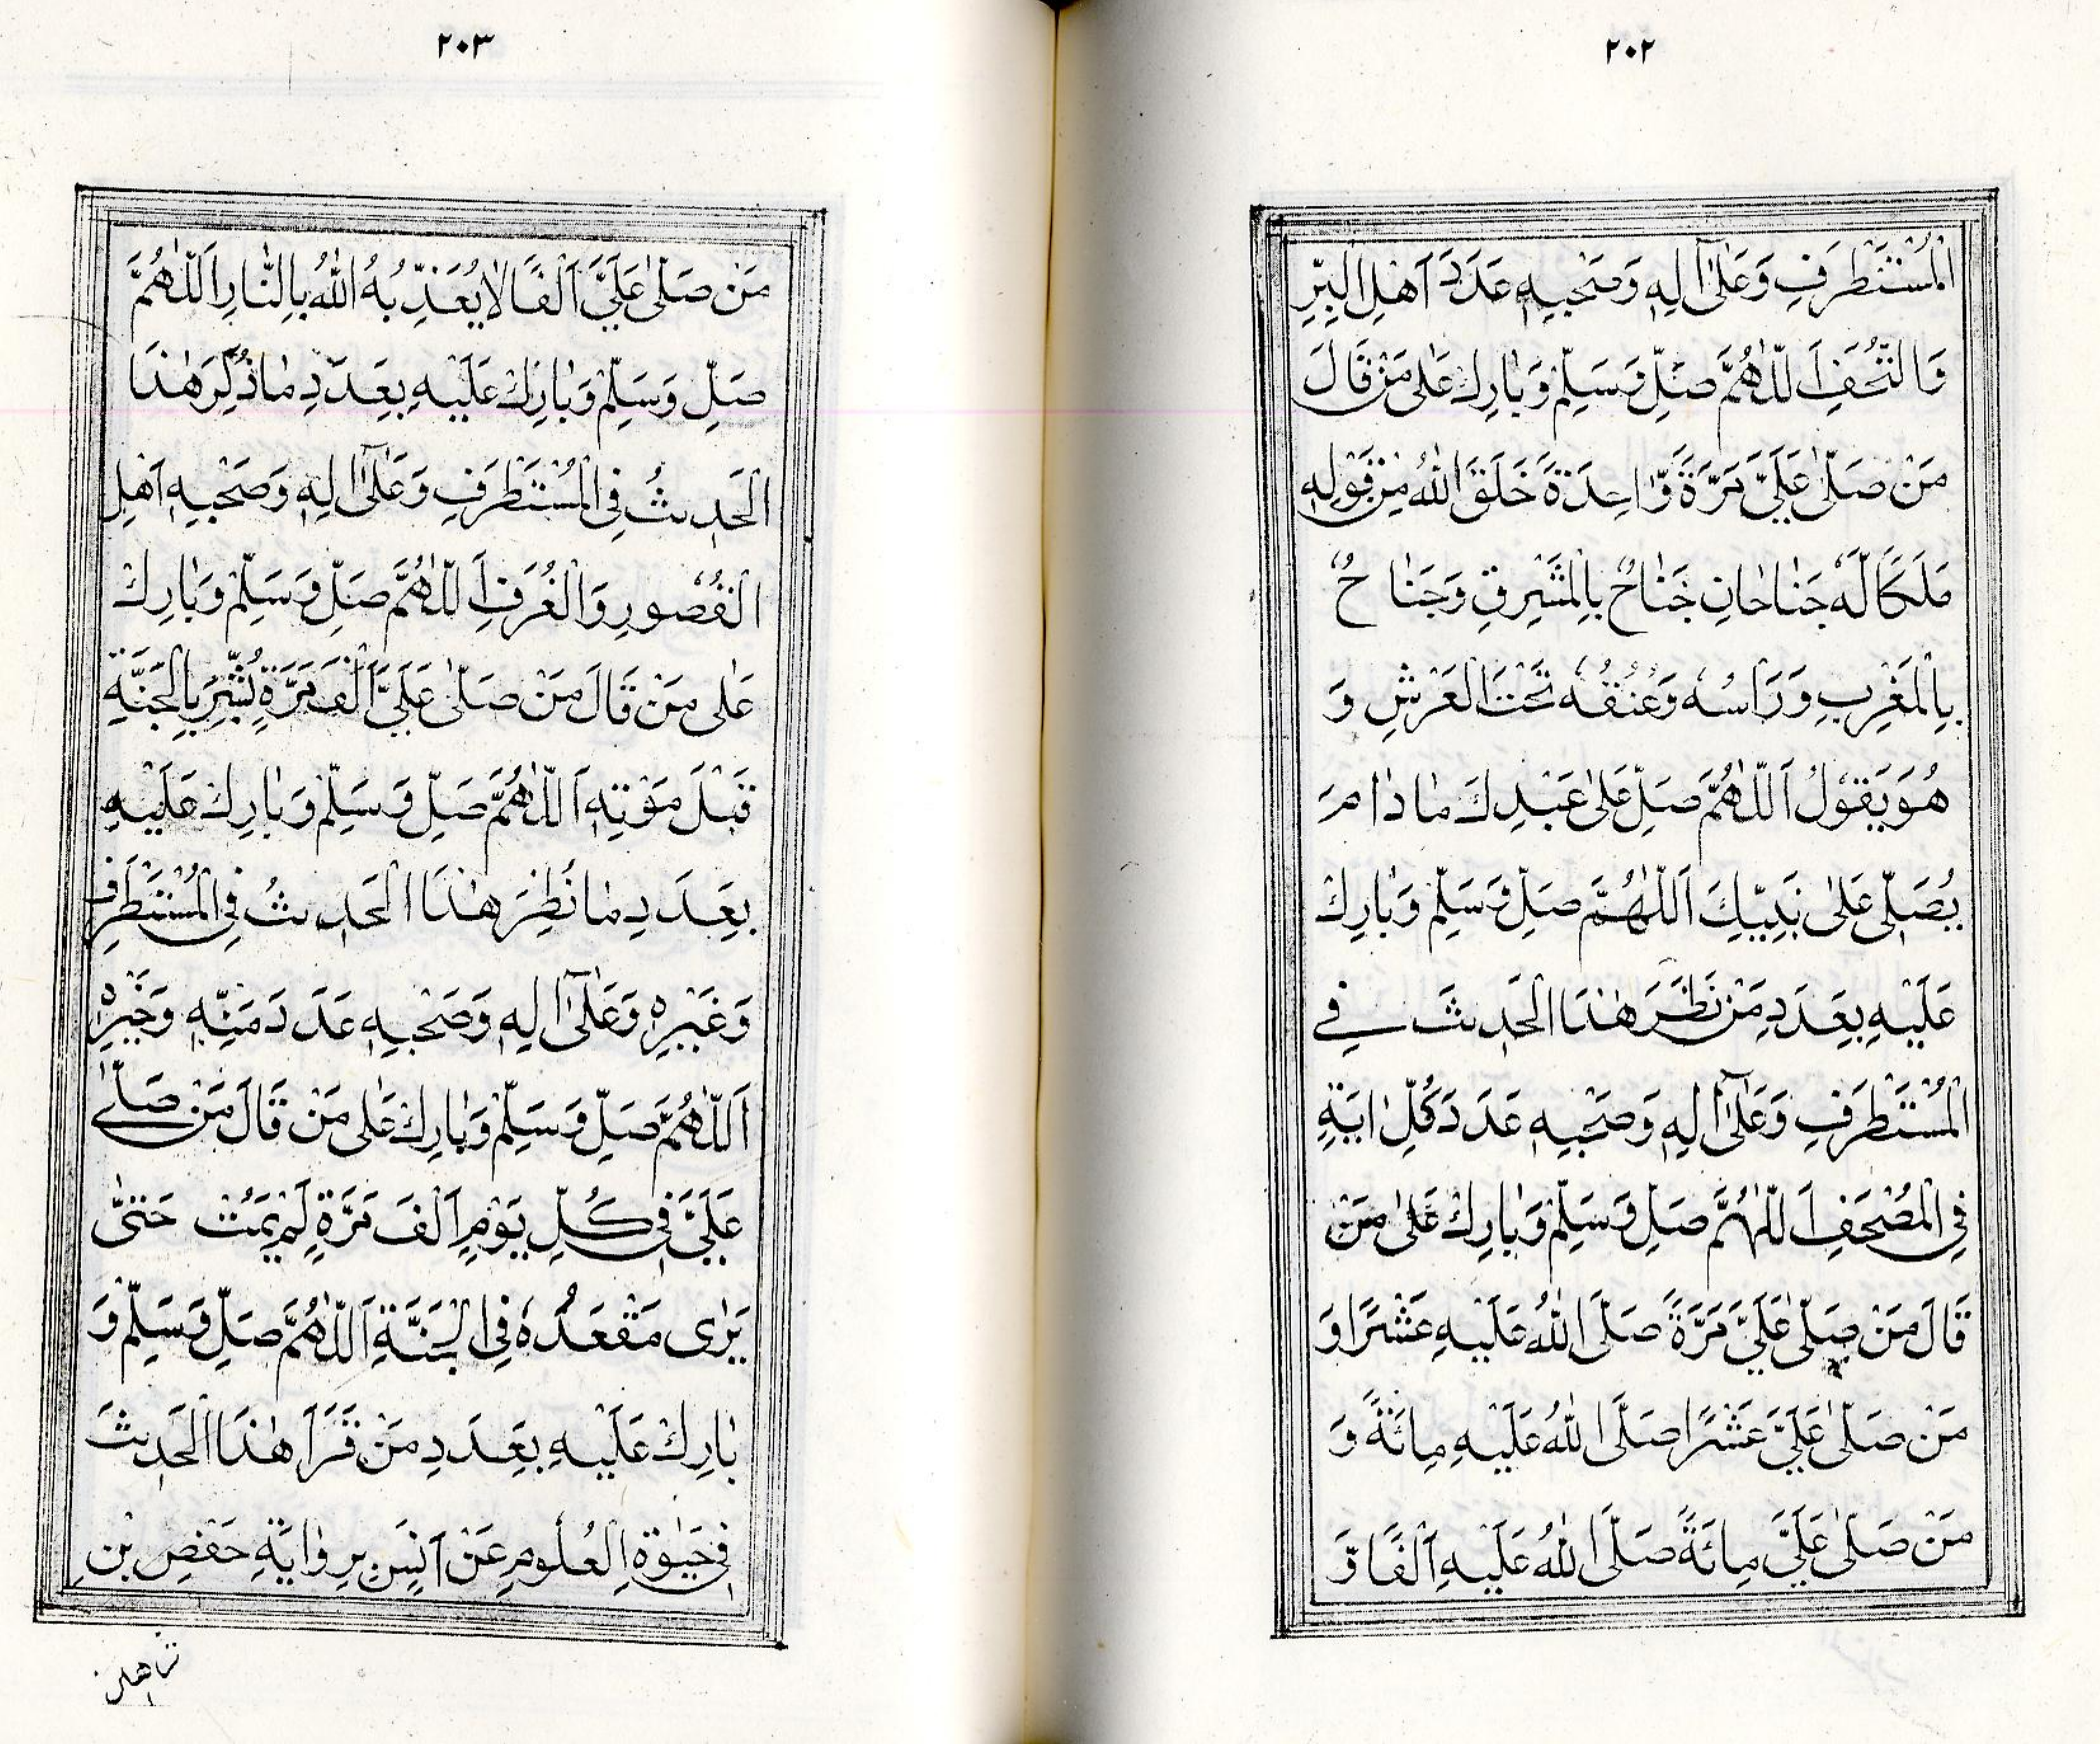 ٢٠٢
الْمُسْتَطْرَفِ وَعَلٰٓى اٰلِهٖ وَصَحْبِهٖ عَدَدَ اَهْلِ الْبِرِّ
وَالتُّحَفِ اَللّٰهُمَّ صَلِّ وَسَلِّمْ وَبَارِكْ عَلٰى مَنْ قَالَ
مَنْ صَلّٰى عَلَيَّ مَرَّةً وَّاحِدَةً خَلَقَ اللّٰهُ مِنْ قَوْلِهٖ
مَلَكًا لَّهٗ جَنَاحَانِ جَنَاحٌ بِالْمَشْرِقِ وَجَنَاحٌ
بِالْمَغْرِبِ وَرَاْسُهٗ وَعُنُقُهٗ تَحْتَ الْعَرْشِ وَ
هُوَ يَقُوْلُ اَللّٰهُمَّ صَلِّ عَلٰى عَبْدِكَ مَا دَامَ
يُصَلِّى عَلٰى نَبِيِّكَ اَللّٰهُمَّ صَلِّ وَسَلِّمْ وَبَارِكْ
عَلَيْهِ بِعَدَدِ مَنْ نَظَرَ هٰذَا الْحَدِيثَ فِي
الْمُسْتَطْرَفِ وَعَلٰٓى اٰلِهٖ وَصَحْبِهٖ عَدَدَ كُلِّ اٰيَةٍ
فِي الْمُصْحَفِ اَللّٰهُمَّ صَلِّ وَسَلِّمْ وَبَارِكْ عَلٰى مَنْ
قَالَ مَنْ صَلّٰى عَلَيَّ مَرَّةً صَلَّى اللّٰهُ عَلَيْهِ عَشْرًا وَ
مَنْ صَلّٰى عَلَيَّ عَشْرًا صَلَّى اللّٰهُ عَلَيْهِ مِائَةً وَ
مَنْ صَلّٰى عَلَيَّ مِائَةً صَلَّى اللّٰهُ عَلَيْهِ اَلْفًا وَّ
٢٠٣
مَنْ صَلّٰى عَلَيَّ اَلْفًا لَايُعَذِّبُهُ اللّٰهُ بِالنَّارِ اَللّٰهُمَّ
صَلِّ وَسَلِّمْ وَبَارِكْ عَلَيْهِ بِعَدَدِ مَا ذُكِرَ هٰذَا
الْحَدِيثُ فِي الْمُسْتَطْرَفِ وَعَلٰٓى اٰلِهٖ وَصَحْبِهٖ اَهْلِ
الْقُصُورِ وَالْغُرَفِ اَللّٰهُمَّ صَلِّ وَسَلِّمْ وَبَارِكْ
عَلٰى مَنْ قَالَ مَنْ صَلّٰى عَلَيَّ اَلْفَ مَرَّةٍ بُشِّرَ بِالْجَنَّةِ
قَبْلَ مَوْتِهٖ اَللّٰهُمَّ صَلِّ وَسَلِّمْ وَبَارِكْ عَلَيْهِ
بِعَدَدِ مَا نُظِرَ هٰذَا الْحَدِيثُ فِي الْمُسْتَطْرَفِ
وَغَيْرِهٖ وَعَلٰٓى اٰلِهٖ وَصَحْبِهٖ عَدَدَ مَنِّهٖ وَخَيْرِهٖ
اَللّٰهُمَّ صَلِّ وَسَلِّمْ وَبَارِكْ عَلٰى مَنْ قَالَ مَنْ صَلّٰے
عَلَيَّ فِي كُلِّ يَوْمٍ اَلْفَ مَرَّةٍ لَمْ يَمُتْ حَتّٰى
يَرٰى مَقْعَدَهٗ فِي الْجَنَّةِ اَللّٰهُمَّ صَلِّ وَسَلِّمْ وَ
بَارِكْ عَلَيْهِ بِعَدَدِ مَنْ قَرَاَ هٰذَا الْحَدِيثَ
فِي حَيٰوةِ الْعُلُومِ عَنْ اَنَسٍ بِرِوَايَةِ حَفْصِ بْنِ